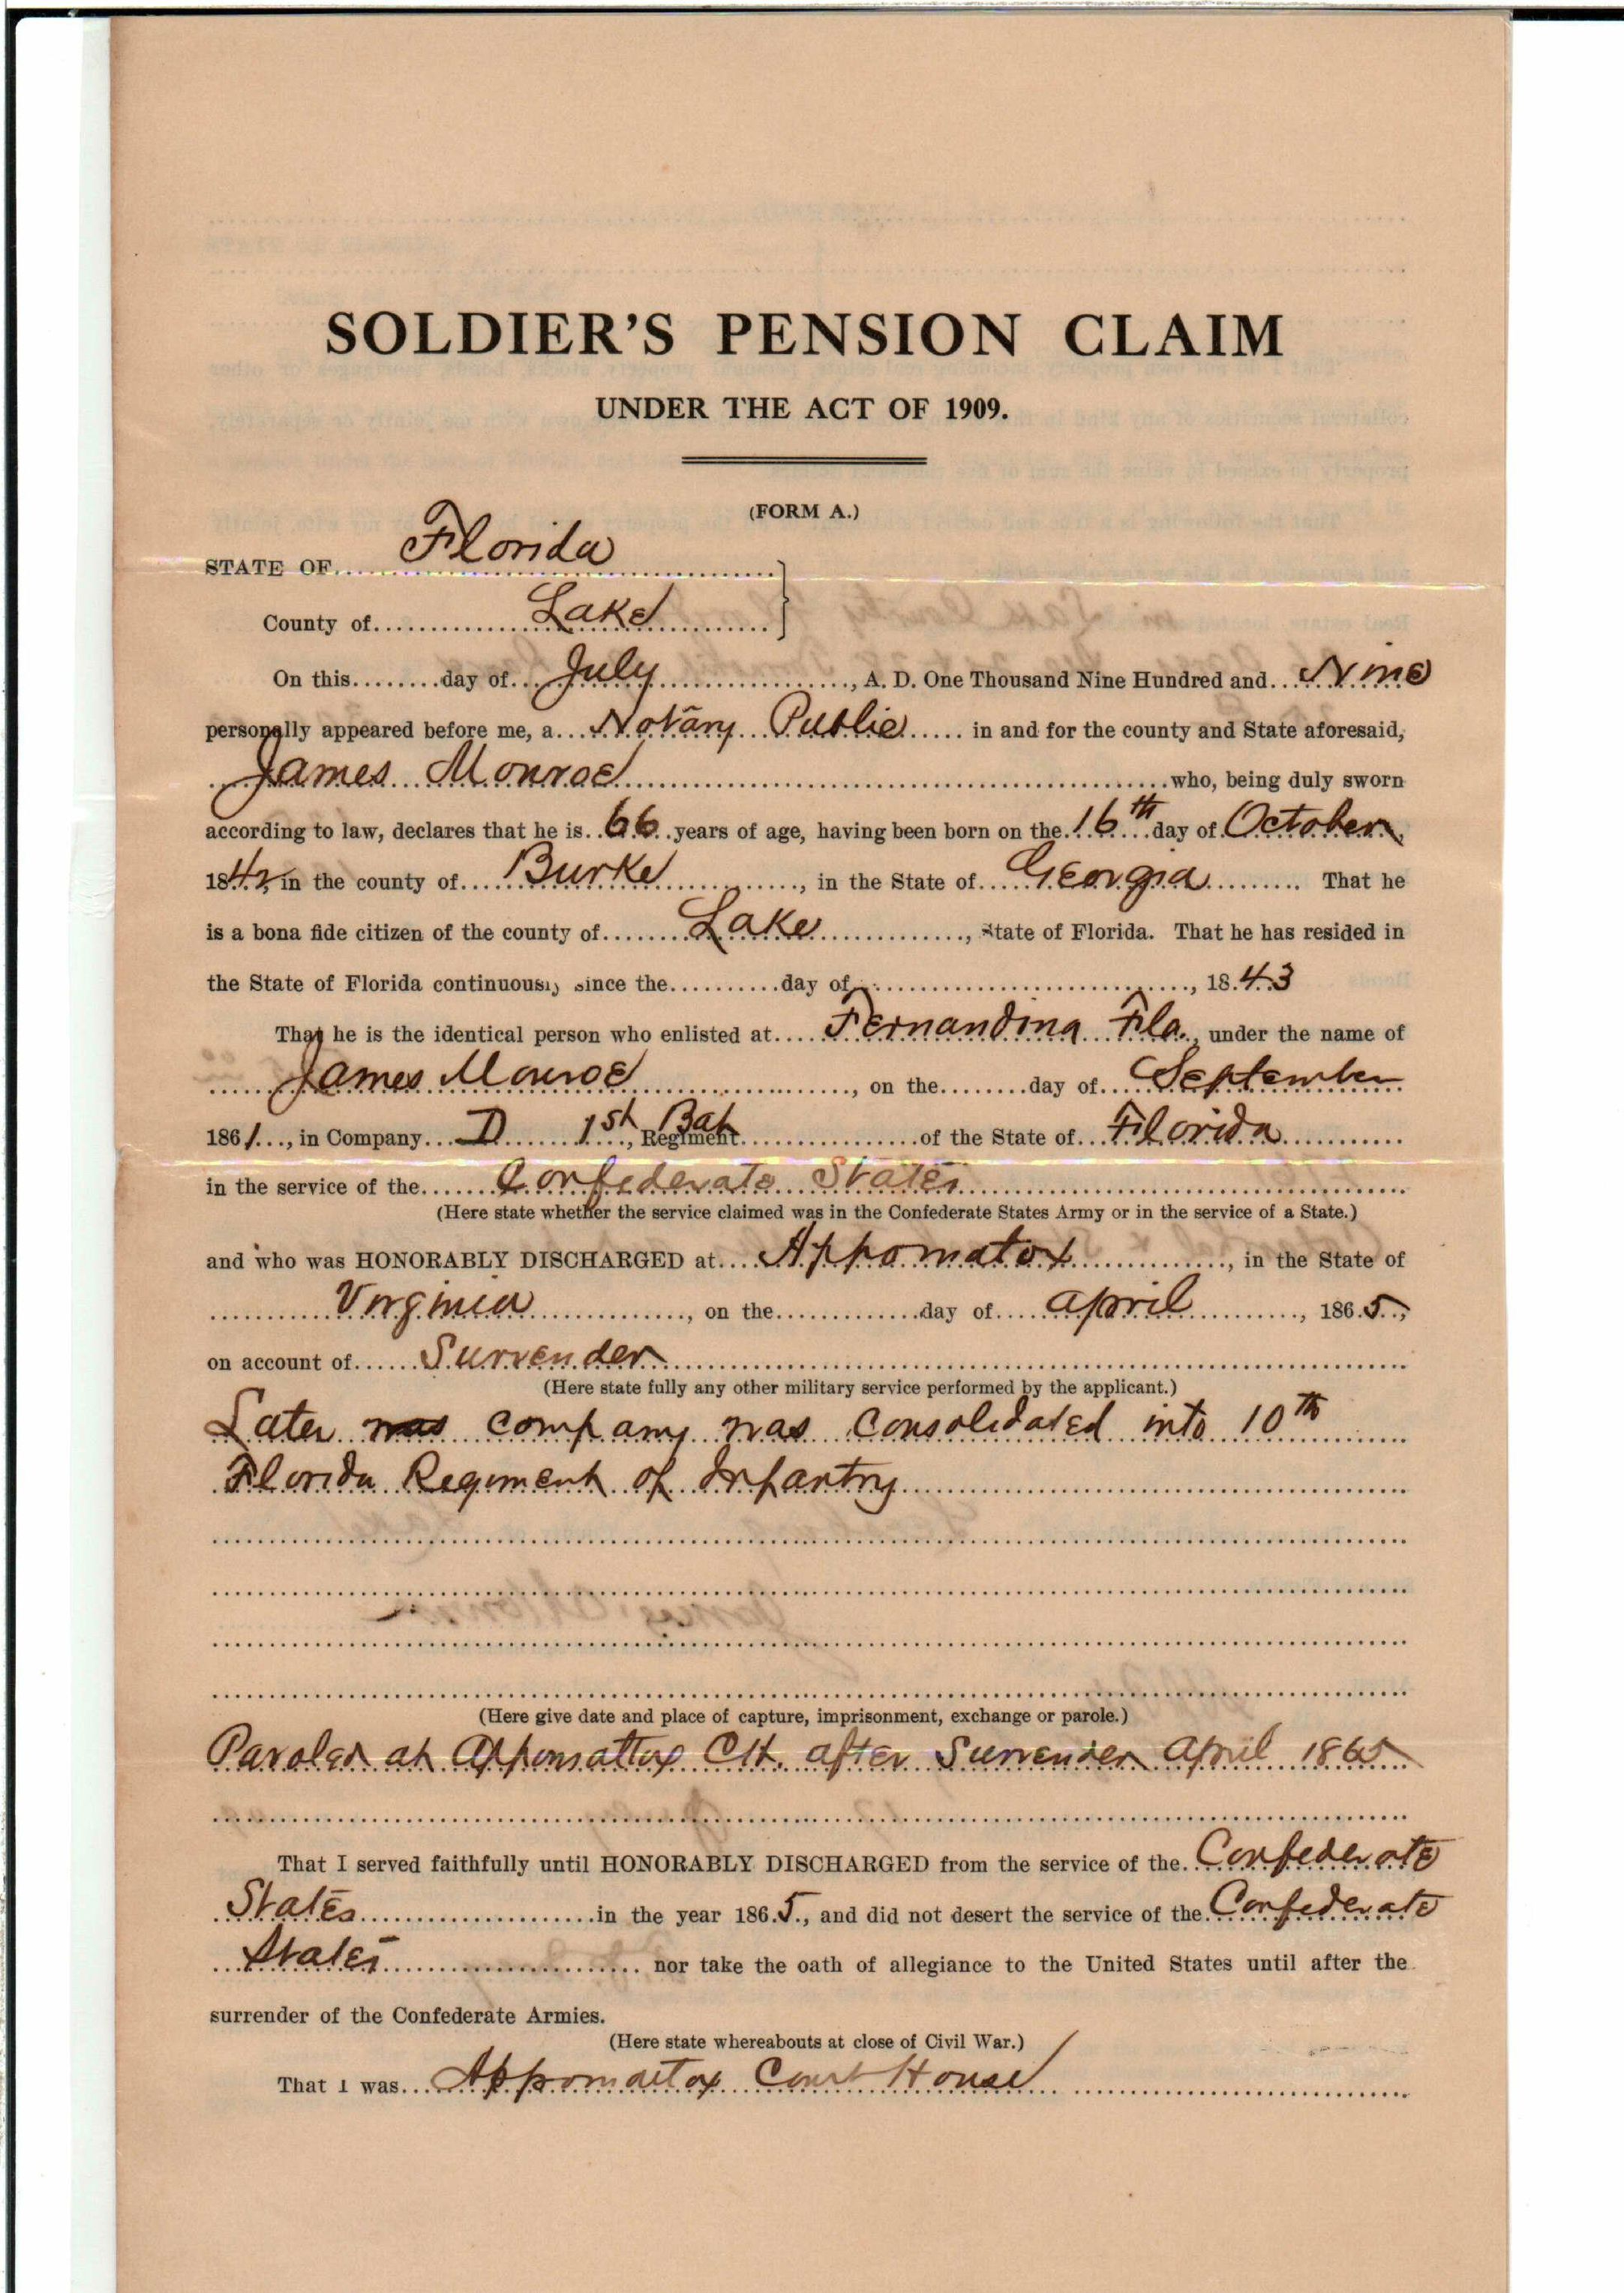 SOLDIER'S PENSION CLAIM
UNDER THE ACT OF 1909.
(FORM A.)
STATE OF Florida
County of Lake
On this ........ day of July, A. D. One Thousand Nine Hundred and Nine
personally appeared before me, a Notary Public in and for the county and State aforesaid,
James Monroe who, being duly sworn
according to law, declares that he is 66 years of age, having been born on the 16th day of October,
1842, in the county of Burke, in the State of Georgia. That he
is a bona fide citizen of the county of Lake, State of Florida. That he has resided in
the State of Florida continuously since the .......... day of .........., 1843
That he is the identical person who enlisted at Fernandina Fla., under the name of
James Monroe, on the ........ day of September
1861, in Company D 1st, Regiment Bat of the State of Florida
in the service of the Confederate States
(Here state whether the service claimed was in the Confederate States Army or in the service of a State.)
and who was HONORABLY DISCHARGED at Appomatox, in the State of
Virginia, on the .......... day of April, 1865,
on account of Surrender
(Here state fully any other military service performed by the applicant.)
Later was company was consolidated into 10th
Florida Regiment of Infantry
(Here give date and place of capture, imprisonment, exchange or parole.)
Paroled at Appomattox C.H. after Surrender April 1865
That I served faithfully until HONORABLY DISCHARGED from the service of the Confederate
States in the year 1865, and did not desert the service of the Confederate
States nor take the oath of allegiance to the United States until after the
surrender of the Confederate Armies.
(Here state whereabouts at close of Civil War.)
That I was Appomattox Court House